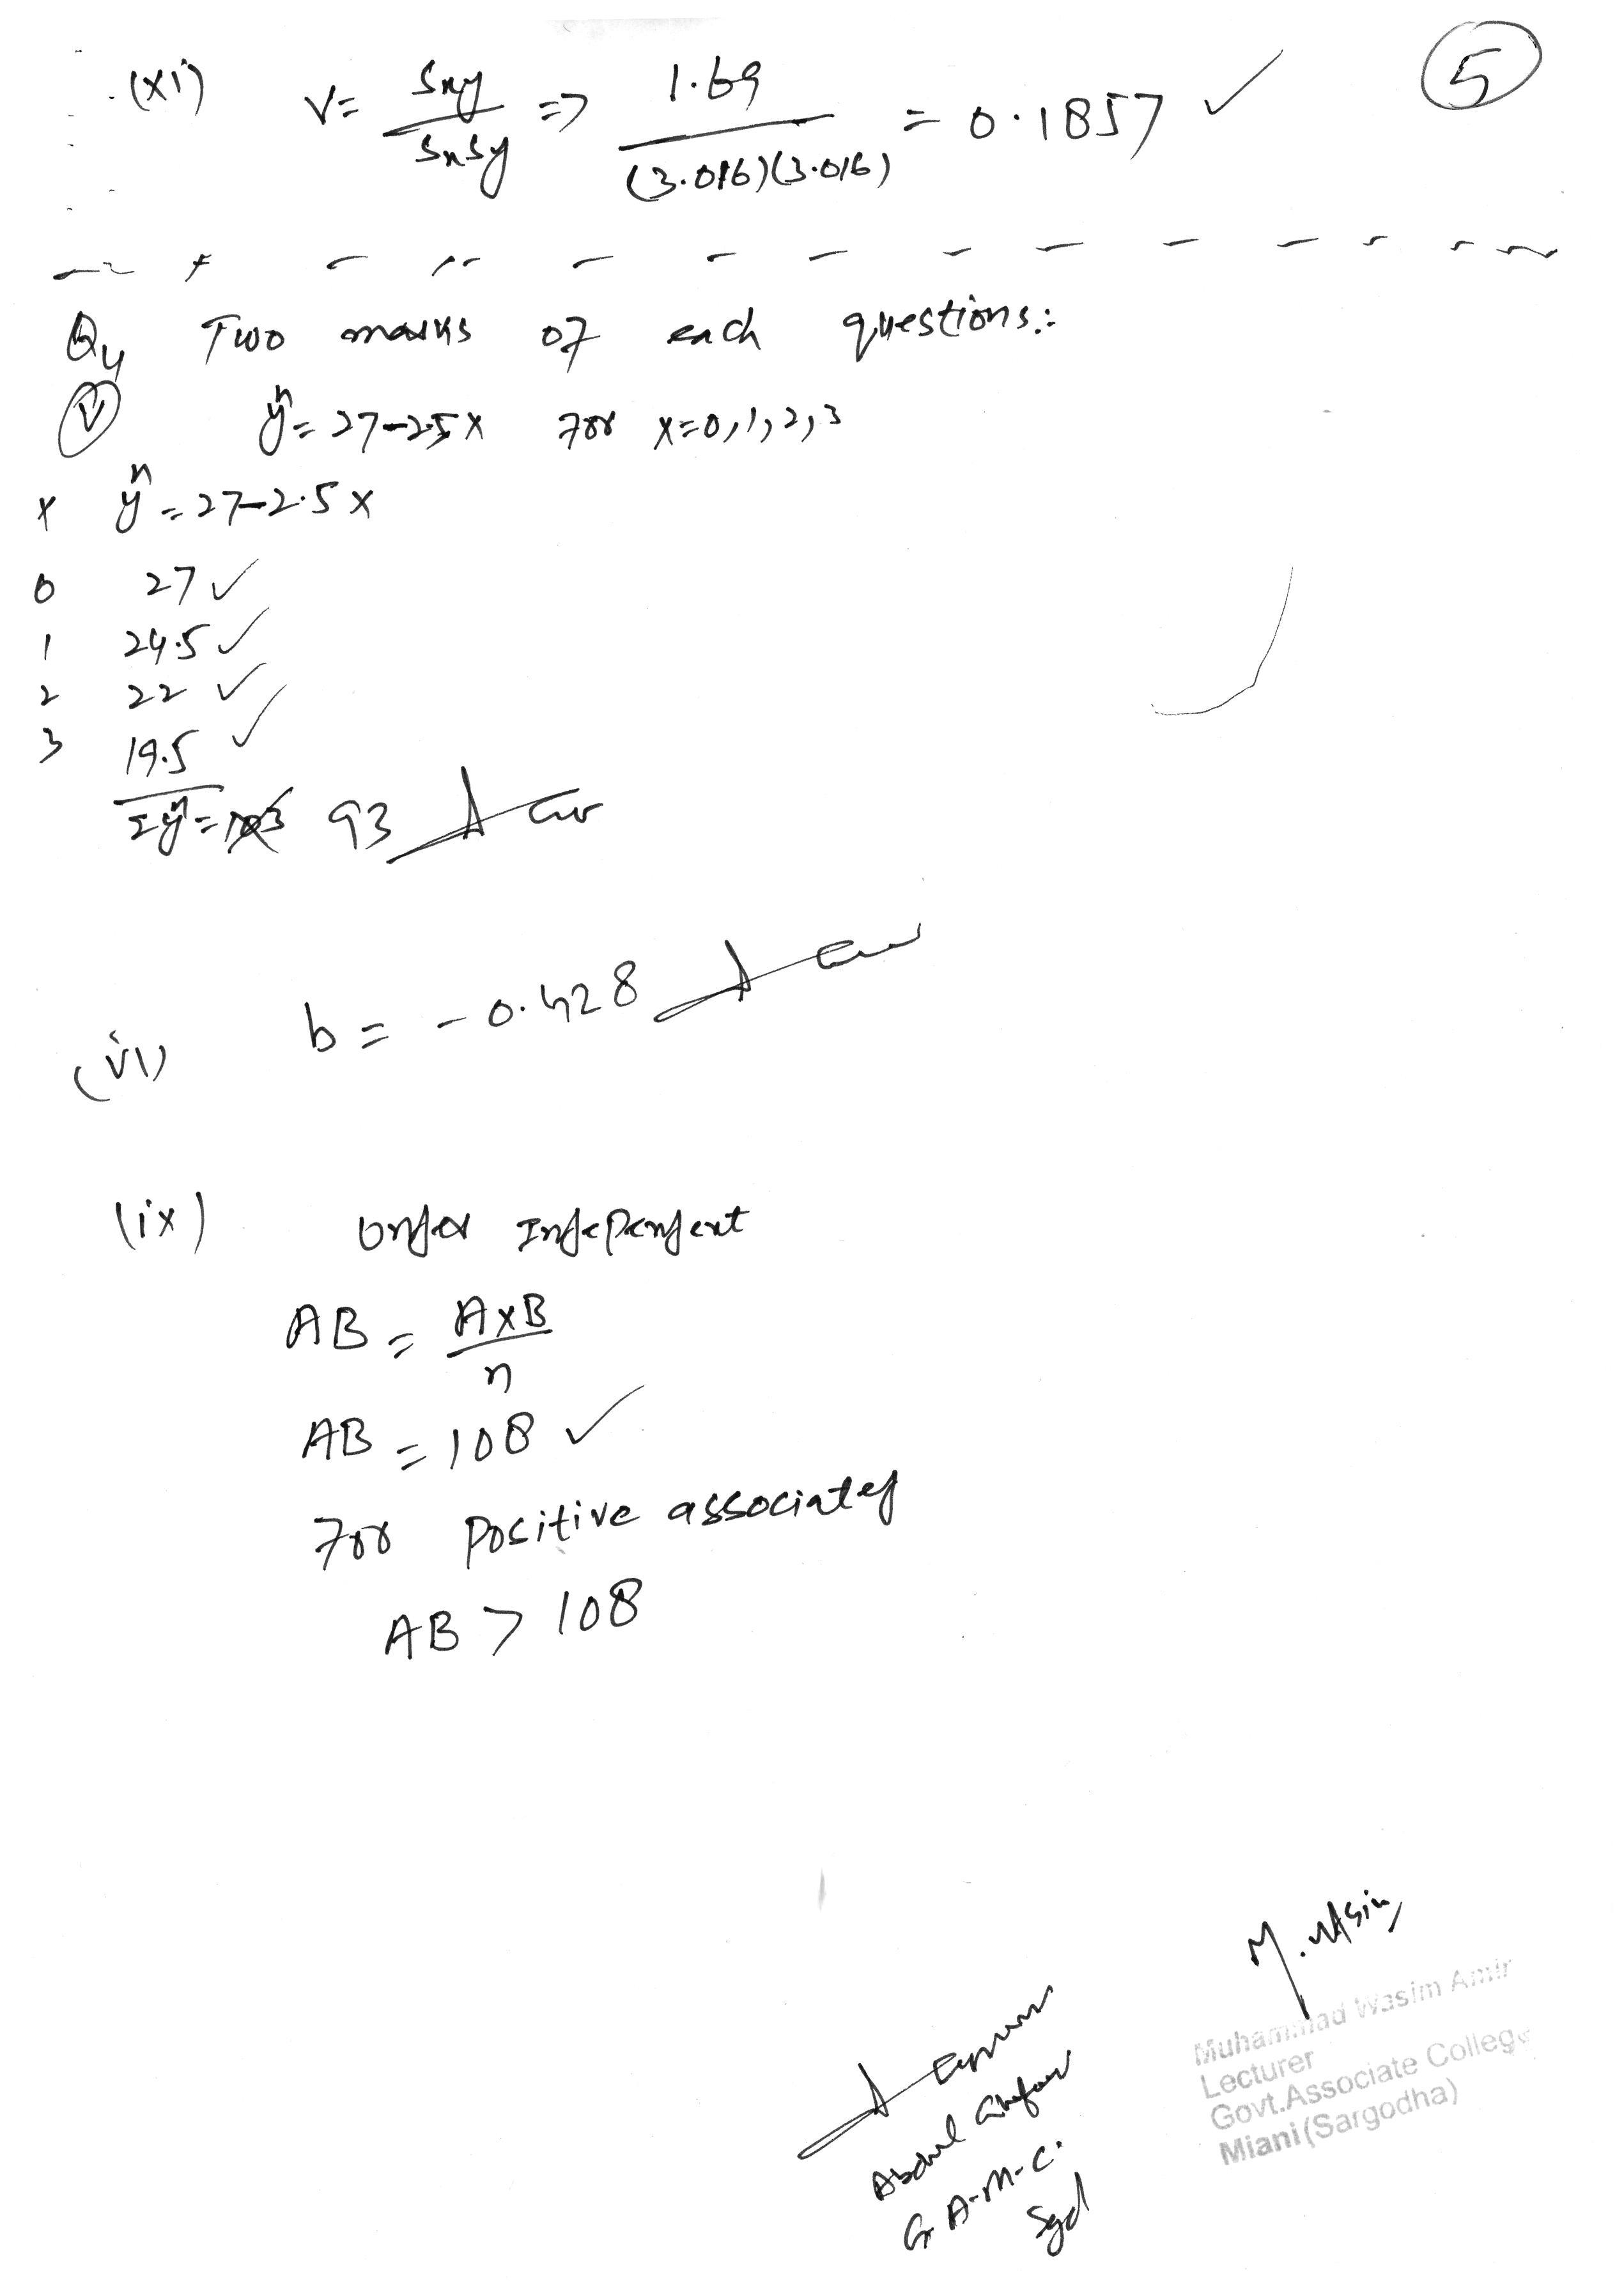 (xi) r = Sxy / SxSy => 1.69 / (3.016)(3.016) = 0.1857 ✓
5
Q4 Two marks of each questions:
(V) ŷ = 27-2.5x for x=0,1,2,3
x ŷ = 27-2.5x
0 27 ✓
1 24.5 ✓
2 22 ✓
3 19.5 ✓
Σŷ = 103 93
(vi) b = -0.428
(ix) Under Independent
AB = AxB / n
AB = 108 ✓
For Positive associated
AB > 108
M. Wasim
Muhammad Wasim Amir
Lecturer
Govt.Associate College
Miani (Sargodha)
Abdul Ghafoor
G.A.M.C.
Sgd